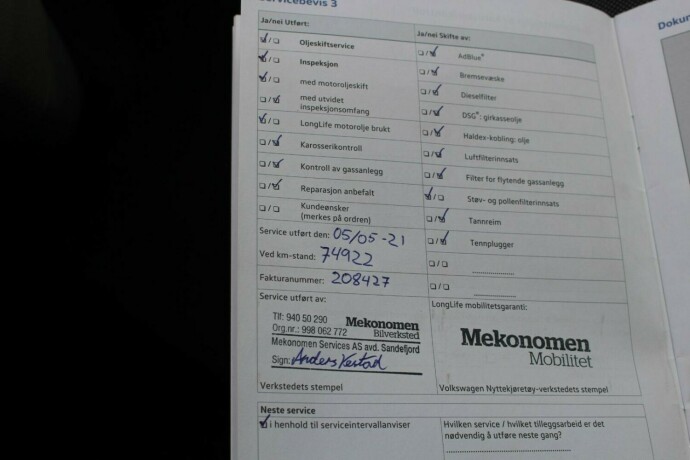 Servicebevis 3
Dokum
Ja/nei Utført:
Ja/nei Skifte av:
☑/☐ Oljeskiftservice
☐/☑ AdBlue®
☑/☐ Inspeksjon
☐/☑ Bremsevæske
☑/☐ med motoroljeskift
☐/☑ Dieselfilter
☐/☑ med utvidet
inspeksjonsomfang
☐/☑ DSG®: girkasseolje
☑/☐ LongLife motorolje brukt
☐/☑ Haldex-kobling: olje
☐/☑ Karosserikontroll
☐/☑ Luftfilterinnsats
☐/☑ Kontroll av gassanlegg
☐/☑ Filter for flytende gassanlegg
☐/☑ Reparasjon anbefalt
☑/☐ Støv- og pollenfilterinnsats
☐/☐ Kundeønsker
(merkes på ordren)
☐/☑ Tannreim
Service utført den: 05/05-21
☐/☑ Tennplugger
Ved km-stand: 74922
☐/☐ ....................
Fakturanummer: 208427
☐/☐ ....................
Service utført av:
LongLife mobilitetsgaranti:
Tlf: 940 50 290 Mekonomen
Org.nr.: 998 062 772 Bilverksted
Mekonomen Services AS avd. Sandefjord
Sign: Anders
Mekonomen
Mobilitet
Verkstedets stempel
Volkswagen Nyttekjøretøy-verkstedets stempel
Neste service
☑ i henhold til serviceintervallanviser
Hvilken service / hvilket tilleggsarbeid er det
nødvendig å utføre neste gang?